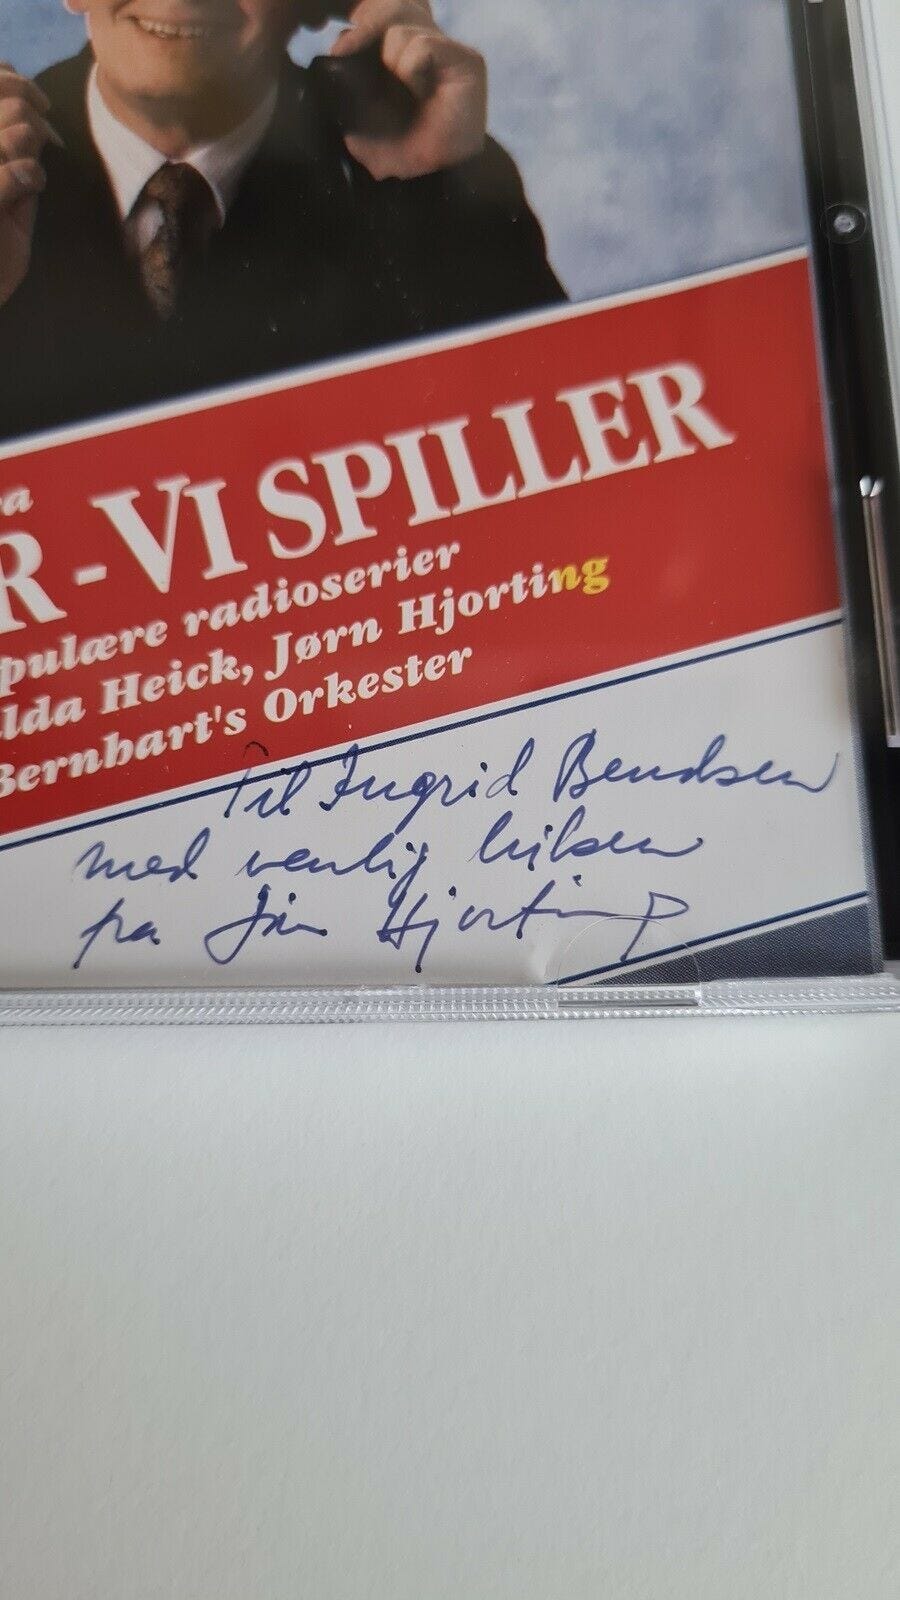 ra
R - VI SPILLER
pulære radioserier
lda Heick, Jørn Hjorting
Bernhart's Orkester
Til Ingrid Bendsen
med venlig hilsen
fra Jørn Hjorting